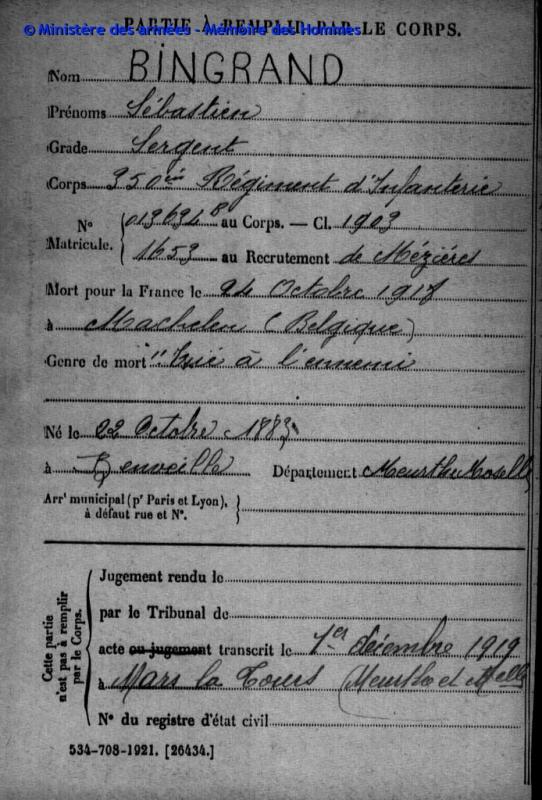 PARTIE À REMPLIR PAR LE CORPS.
© Ministère des armées - Mémoire des Hommes
Nom BINGRAND
Prénoms Sébastien
Grade Sergent
Corps 350ème Régiment d'Infanterie
N° Matricule. 013634B au Corps. — Cl. 1903
1653 au Recrutement de Mézières
Mort pour la France le 24 Octobre 1918
à Machelen (Belgique)
Genre de mort "Tué à l'ennemi
Né le 22 Octobre 1883
à Département Meurthe Moselle
Arrt municipal (pr Paris et Lyon),
à défaut rue et N°.
Cette partie n'est pas à remplir par le Corps.
Jugement rendu le
par le Tribunal de
acte ou jugement transcrit le 1er décembre 1919
à Mars la Tours (Meurthe et Melle
N° du registre d'état civil
534-708-1921. [26434.]